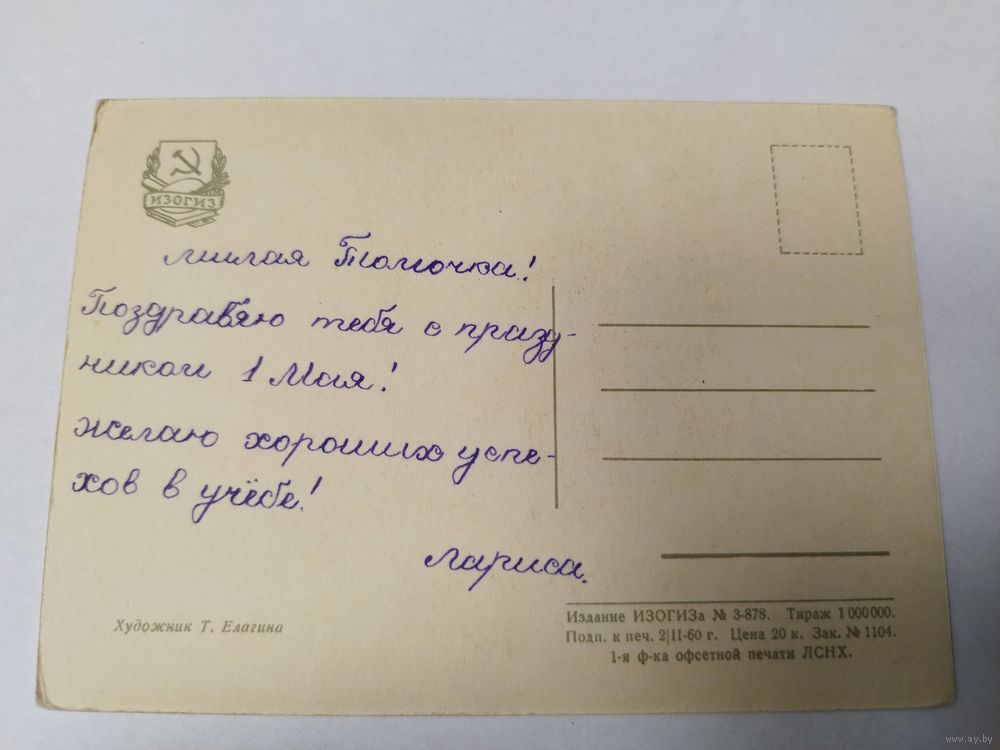 ИЗОГИЗ
милая Томочка!
Поздравяю тебя с празд-
ником 1 Мая!
желаю хороших успе-
хов в учёбе!
Лариса.
Художник Т. Елагина
Издание ИЗОГИЗа № 3-878. Тираж 1 000 000.
Подп. к печ. 2|II-60 г. Цена 20 к. Зак. № 1104.
1-я ф-ка офсетной печати ЛСНХ.
www.ay.by